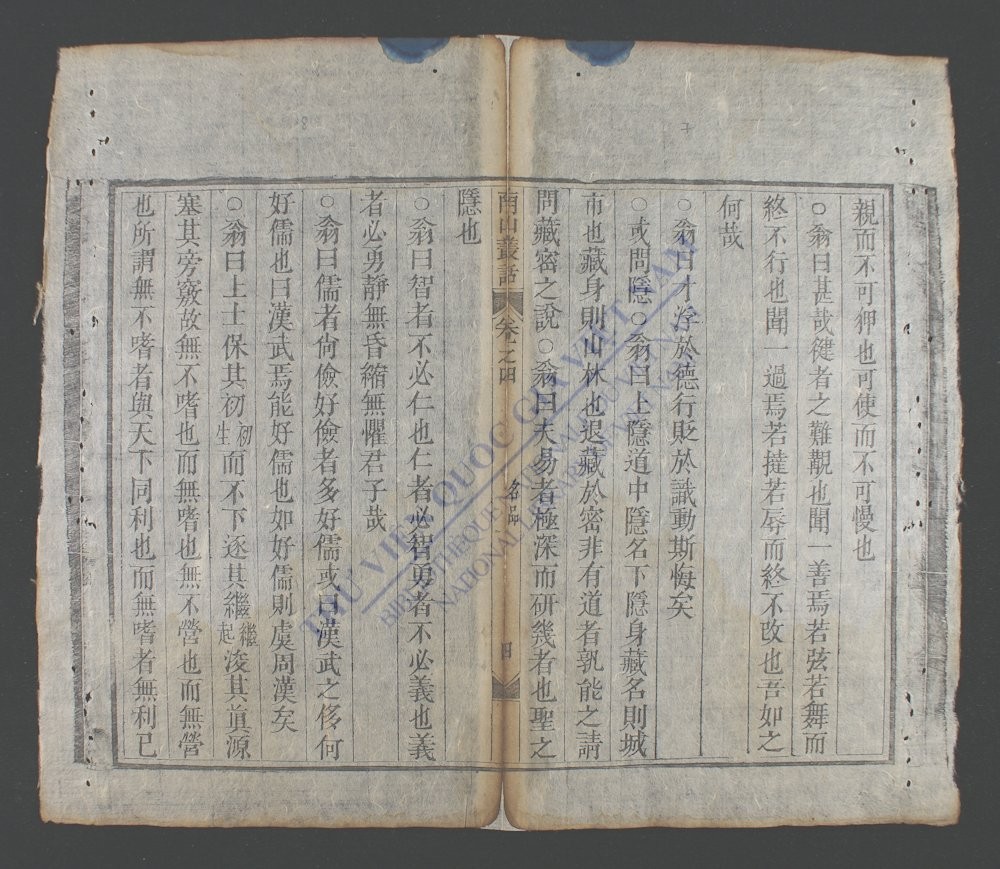 親而不可狎也可使而不可慢也
○翁曰甚哉健者之難覯也聞一善焉若弦若舞而
終不行也聞一過焉若撻若辱而終不改也吾如之
何哉
○翁曰才浮於德行貶於識動斯悔矣
○或問隱○翁曰上隱道中隱名下隱身藏名則城
市也藏身則山林也退藏於密非有道者孰能之請
問藏密之說○翁曰夫易者極深而研幾者也聖之
隱也
南山叢話 卷之四 名品 四
○翁曰智者不必仁也仁者必智勇者不必義也義
者必勇靜無昏縮無懼君子哉
○翁曰儒者尚儉好儉者多好儒或曰漢武之侈何
好儒也曰漢武焉能好儒也如好儒則虞周漢矣
○翁曰上士保其初初生而不下逐其繼繼起浚其眞源
塞其旁竅故無不嗜也而無嗜也無不營也而無營
也所謂無不嗜者與天下同利也而無嗜者無利已
THƯ VIỆN QUỐC GIA VIỆT NAM
BIBLIOTHEQUE NATIONALE DU VIETNAM
NATIONAL LIBRARY OF VIETNAM